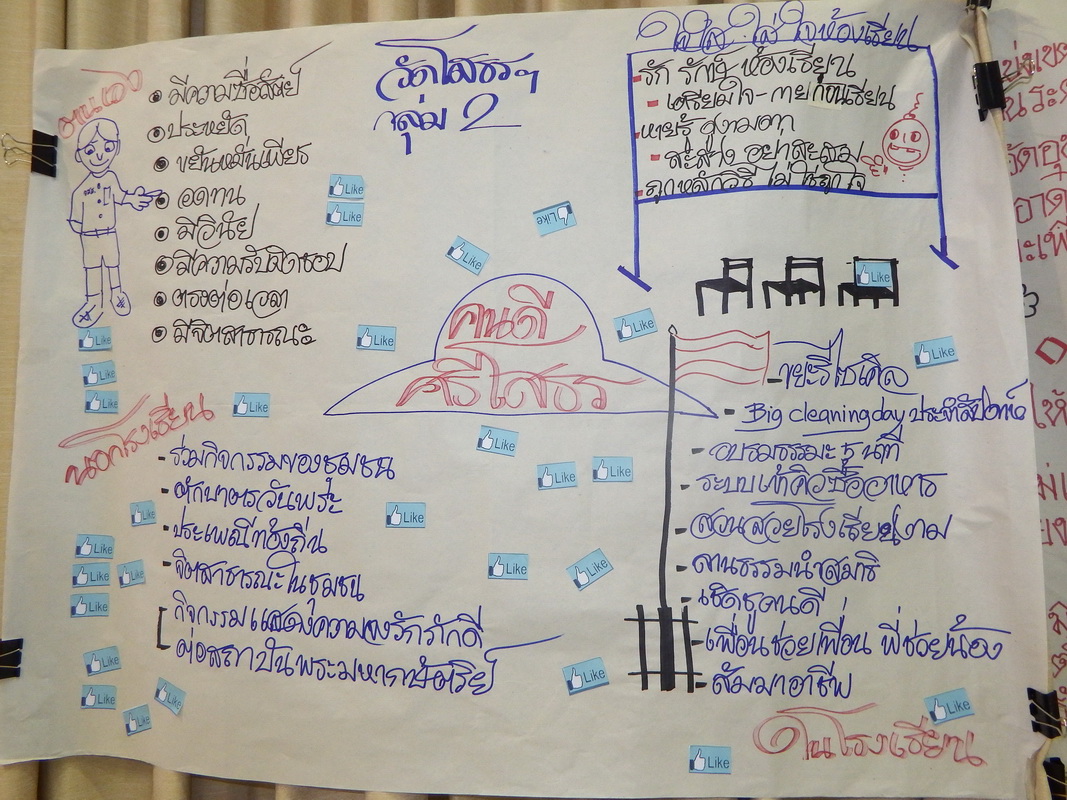 วัดโสธรฯ
กลุ่ม 2
ตนเอง
มีความซื่อสัตย์
ประหยัด
ขยันหมั่นเพียร
อดทน
มีวินัย
มีความรับผิดชอบ
ตรงต่อเวลา
มีจิตสาธารณะ
ใส่ใจห้องเรียน
- รัก ห้องเรียน
- เตรียมใจ-กายก่อนเรียน
- สะสาง อย่าสะสม
- ถูกหลักวิธี
คนดี
ศรีโสธร
นอกโรงเรียน
- ร่วมกิจกรรมของชุมชน
- ตักบาตรวันพระ
- ประเพณีท้องถิ่น
- จิตสาธารณะในชุมชน
กิจกรรมแสดงความจงรักภักดี
ต่อสถาบันพระมหากษัตริย์
- ขยะรีไซเคิล
- Big cleaning day ประจำสัปดาห์
- อบรมธรรมะ ๕ นาที
- ระบบเข้าคิวซื้ออาหาร
- สวนสวยโรงเรียนงาม
- ลานธรรมนำสมาธิ
- เชิดชูคนดี
- เพื่อนช่วยเพื่อน พี่ช่วยน้อง
- สัมมาอาชีพ
ในโรงเรียน
Like
Like
Like
Like
Like
Like
Like
Like
Like
Like
Like
Like
Like
Like
Like
Like
Like
Like
Like
Like
Like
Like
Like
Like
Like
Like
Like
Like
Like